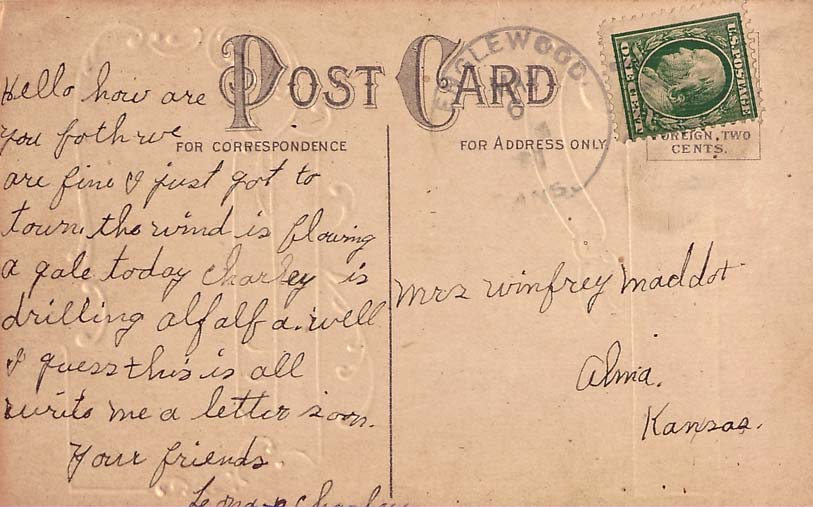 POST CARD
FOR CORRESPONDENCE
FOR ADDRESS ONLY
ENGLEWOOD.
KANS.
U.S. POSTAGE
ONE CENT
FOREIGN, TWO
CENTS.
Hello how are
you both we
are fine I just got to
town. the wind is blowing
a gale today Charley is
drilling alfalfa. well
I guess this is all
write me a letter soon.
Your friends
Mrs Winfrey Maddot
Alma.
Kansas.